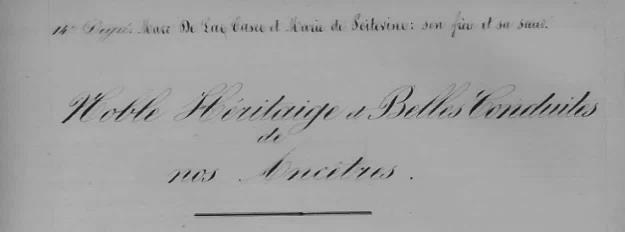 14e Degré. Marc De Lac Casce et Marie de Poitevine: son frère et sa sœur.
Noble Héritaige et Belles Conduites
de
nos Ancêtres.